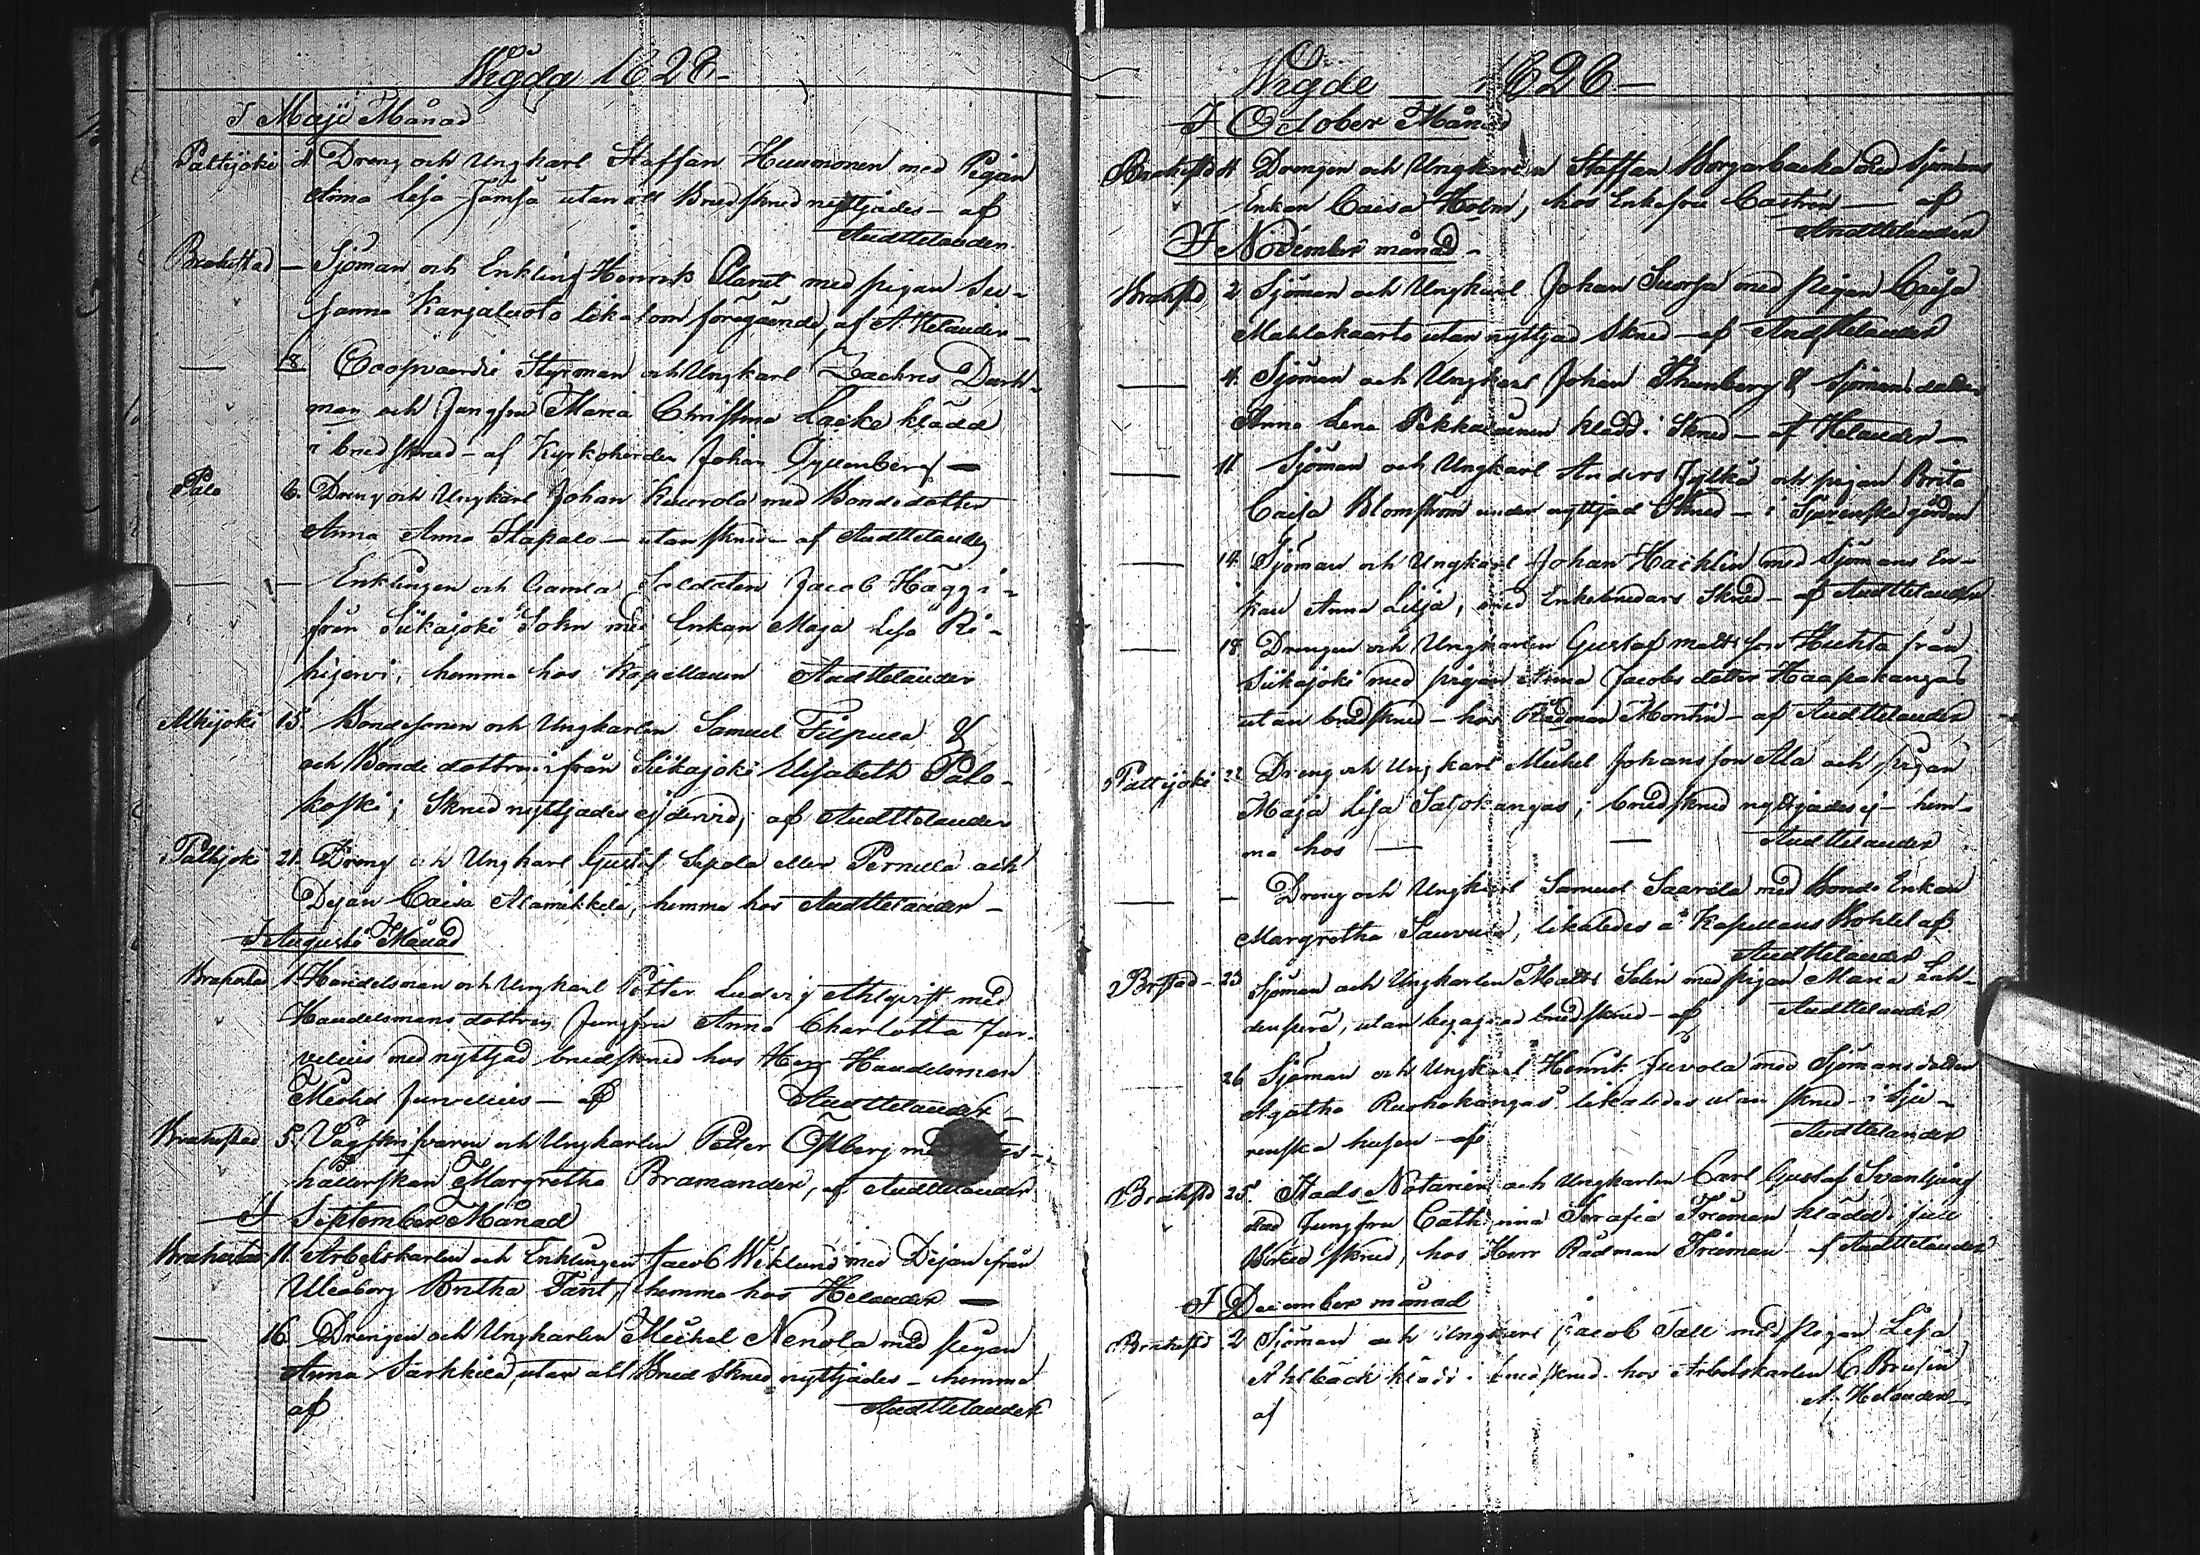 Wigda 1828-
I Maji Månad
Pattijoki 4 Dreng och Ungkarl Staffan Huumonen med Pigan
Anna Lisa Jämsä utan att Brudskrud nyttjades - af
And Helander
Brahestad - Sjöman och Enkling Henrik Planet med pigan Su-
sanna Karjaluoto lika som föregående, af A. Helander -
8. Coopvaerdie Styrman och Ungkarl Zachris Dark-
man och Jungfru Maria Christina Lacke klädd
i brudskrud - af Kyrkoherden Johan
Palo 6. Dreng och Ungkarl Johan med Bondedotter
Anna Anna Ilapalo - utan skrud - af And Helander
- Enklingen och Gamla Soldaten Jacob Häggi-
från Siikajoki Sokn med Enkan Maja Lisa Ri-
hijervi, hemma hos Kapellanen And Helander
15. Bondesonen och Ungkarlen Samuel &
och Bonde dottren ifrån Siikajoki Elisabeth Palo-
koski; Skrud nyttjades ej dervid, af And Helander
Pattijoki 21. Dreng och Ungkarl Gustaf Sepola eller Pernula och
Dejan Caisa Alamikkela, hemma hos And Helander -
I Augusti Månad
Brahestad 1. Handelsman och Ungkarl Petter Ludvig Ahlqvist med
Handelsmans dottren Jungfru Anna Charlotta Jur-
velius med nyttjad brudskrud hos Herr Handelsman
Michel Jurvelius - af And Helander
Brahestad 5. Vågskrifvaren och Ungkarlen Petter Östberg med
hållerskan Margretha Bramander, af And Helander
I September Månad
Brahestad 11. Arbetskarlen och Enklingen Jacob Wiklund med Dejan ifrån
Uleåborg Britha Fant, hemma hos Helander -
16 Drengen och Ungkarlen Michel Nenola med pigan
Anna Särkkilä, utan att Brud Skrud nyttjades - hemma
af And Helander
Wigde 1828 -
I October Månad
Brahestd 4 Drengen och Ungkarlen Staffan Borgarbacka med Sjömans
Enkan Caisa Holm, hos Enkefru Castrén - af
And Helander
I November månad -
Brahestd 2 Sjöman och Ungkarl Johan Suorsa med Pigan Caisa
Mahlakaarto utan nyttjad Skrud - af And Helander
4. Sjöman och Ungkarl Johan Thunberg & Sjömans dotter
Anna Lena Pekkalainen klädd i Skrud - af Helander -
11. Sjöman och Ungkarl Anders Jylkä och pigan Brita
Caisa Blomström under nyttjad Skrud - i gården
14. Sjöman och Ungkarl Johan Häcklin med Sjömans En-
kan Anna Lilja, med Enkebrudars Skrud - af And Helander
18 Drengen och Ungkarlen Gustaf Matts son Huhta från
Siikajoki med pigan Anna Jacobs dotter Haapakangas
utan brudskrud - hos Rådman Montin - af And Helander
Pattijoki 22 Dreng och Ungkarl Michel Johansson Ala och pigan
Maja Lisa Salokangas; brudskrud nyttjades ej - hem-
ma hos - - And Helander
- - Dreng och Ungkarl Samuel Saarela med Bonde Enkan
Margretha Sauvula, likaledes å Kapellans Bohlet af
And Helander
Brstad - 23 Sjöman och Ungkarlen Matts Selin med pigan Maria Lah-
denperä, utan begagnad brudskrud - af And Helander
26 Sjöman och Ungkarl Henrik Juvola med Sjömansdotter
Agatha Ruohokangas likaledes utan skrud - i Sju-
renska husen - af And Helander
Brahestd 25. Stads Notarien och Ungkarlen Carl Gustaf Svanljung
med Jungfru Catharina Serafia Frieman klädd i full
Brud skrud, hos Herr Rådman Frieman af And Helander
I December månad
Brahestd 2 Sjöman och Ungkarl Jacob Tall med pigan Lisa
Ahlbäck klädd i brudskrud hos Arbetskarlen C Brusin
af A. Helander -